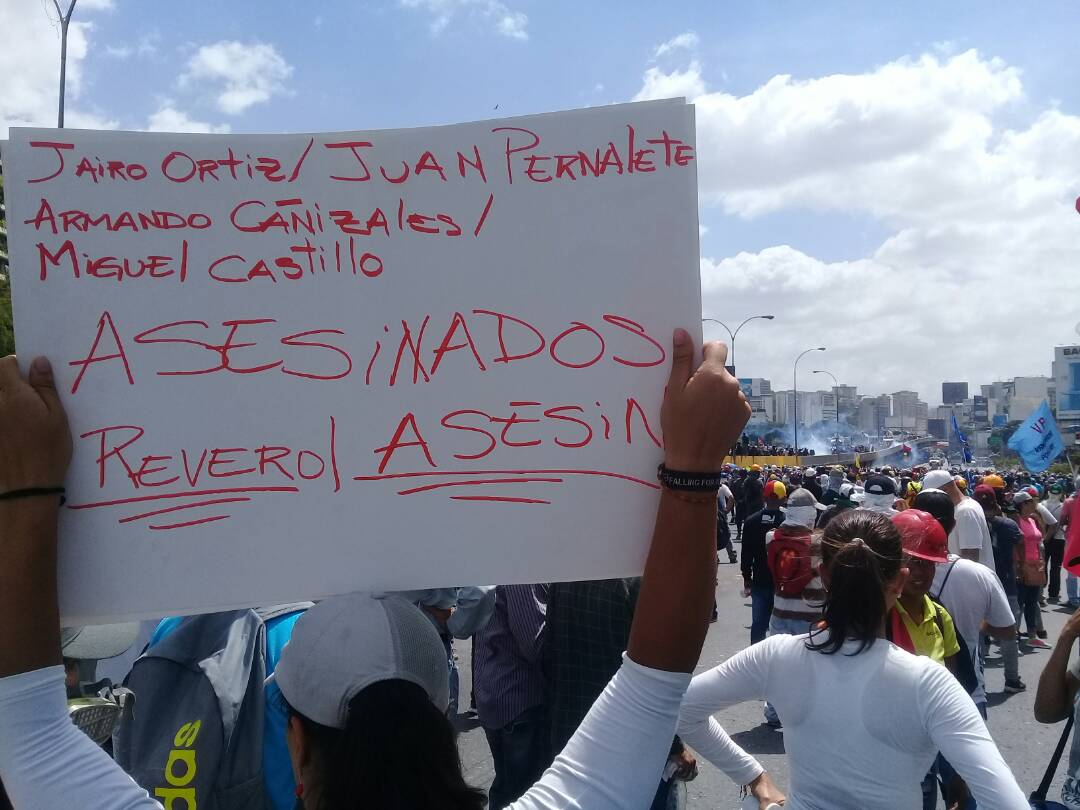 Jairo Ortiz/ Juan Pernalete
Armando Cañizales/
Miguel Castillo
ASESiNADOS
Reverol ASESiN
FALLING FOR
das
VP
BA